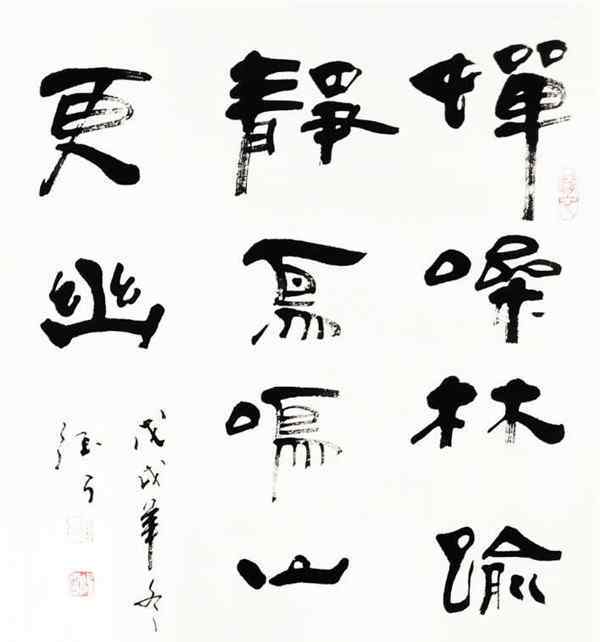 蟬噪林踰
靜鳥鳴山
更幽
戊戌年冬